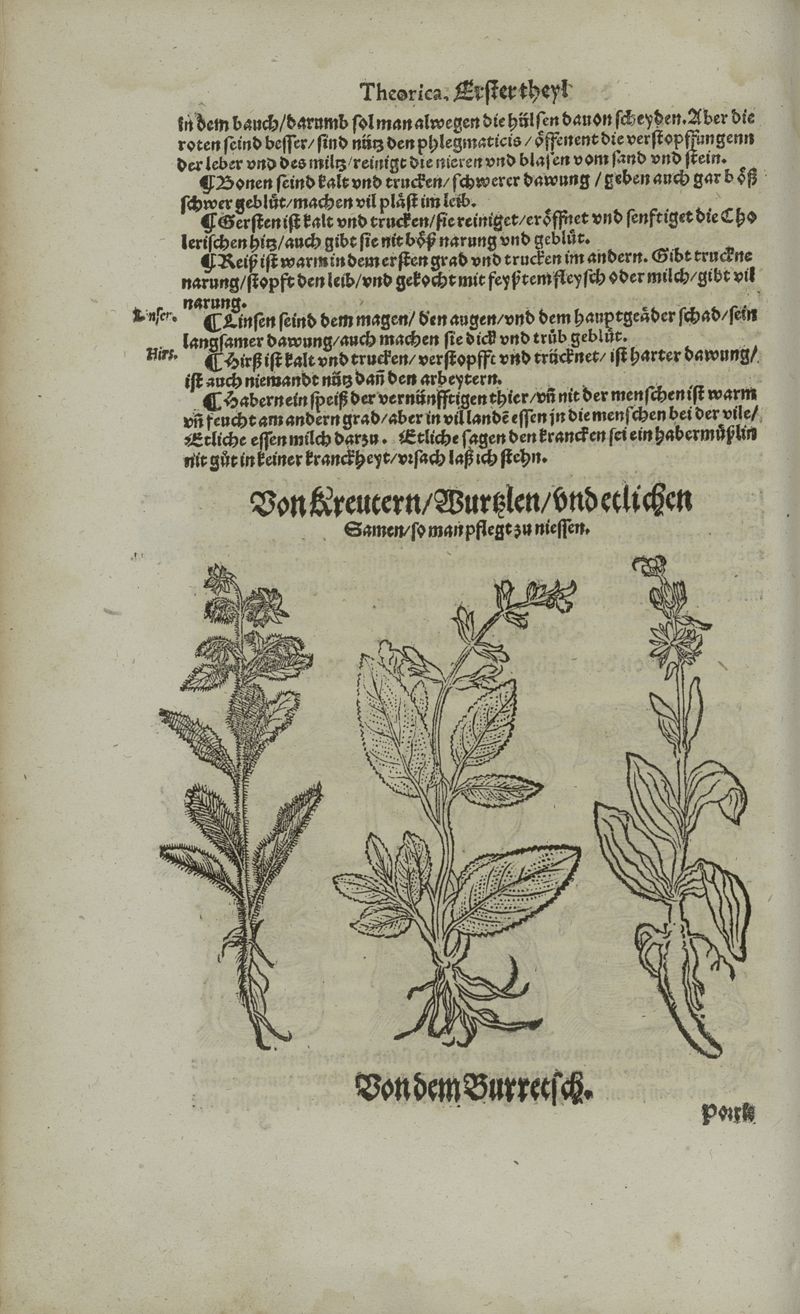 Theorica, Erster theyl
in dem bauch/darumb sol man alwegen die hülsen dauon scheyden. Aber die
roten seind besser/ sind nütz den phlegmaticis/ öffenent die verstopffungenn
der leber vnd des miltz/reinigt die nieren vnd blasen vom sand vnd stein.
¶Bonen seind kalt vnd trucken/ schwerer dawung / geben auch gar böß
schwer geblüt/machen vil pläst im leib.
¶Gersten ist kalt vnd trucken/sie reiniget/eröffnet vnd senftiget die Cho
lerischen hitz/auch gibt sie nit böß narung vnd geblüt.
¶Reiß ist warm in dem ersten grad vnd trucken im andern. Gibt truckne
narung/stopft den leib/vnd gekocht mit feyßtem fleysch oder milch/gibt vil
narung.
Linsen.
¶Linsen seind dem magen/ den augen/vnd dem hauptgeäder schad/sein
langsamer dawung/auch machen sie dick vnd trüb geblüt.
Hirs.
¶Hirß ist kalt vnd trucken/ verstopfft vnd trücknet/ ist harter dawung/
ist auch niemandt nütz dañ den arbeytern.
¶Habern ein speiß der vernünfftigen thier/vñ nit der menschen ist warm
vñ feucht am andern grad/aber in vil landē essen jn die menschen bei der vile/
Etliche essen milch darzu. Etliche sagen den krancken sei ein habermüßlin
nit güt in keiner kranckheyt/vrsach laß ich stehn.
Von Kreutern/Wurtzlen/vnd etlichen
Samen/so man pflegt zu niessen.
Von dem Burretsch.